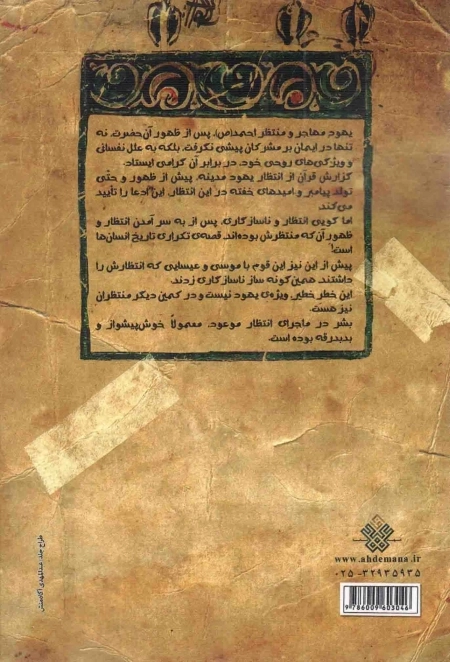 یهود مهاجر و منتظر احمد(ص)، پس از ظهور آن حضرت، نه
تنها در ایمان بر مشرکان پیشی نگرفت، بلکه به علل نفسانی
و ویژگی‌های روحی خود، در برابر آن گرامی ایستاد.
گزارش قرآن از انتظار یهود مدینه، پیش از ظهور و حتّی
تولد پیامبر و امیدهای خفته در این انتظار، این ادعا را تأیید
می‌کند.
اما گویی انتظار و ناسازگاری، پس از به سر آمدن انتظار و
ظهور آن که منتظرش بوده‌اند، قصه‌ی تکراری تاریخ انسان‌ها
است!
پیش از این نیز این قوم با موسی و عیسایی که انتظارش را
داشتند، همین‌گونه ساز ناسازگاری زدند.
این خطر خطیر، ویژه‌ی یهود نیست و در کمین دیگر منتظران
نیز هست.
بشر در ماجرای انتظار موعود، معمولاً خوش‌پیشواز و
بدبدرقه بوده است.
طراح جلد:
www.ahdemana.ir
۰۲۵-۳۲۹۳۵۹۳۵
9 786009 603046